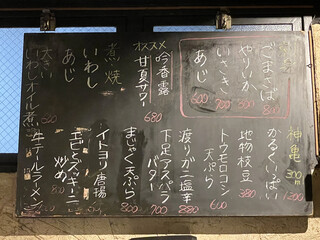 刺身
ごまさば 800
やりいか
いさき 700
あじ 600
オススメ
吟香露
甘夏サワー 680
煮・焼
いわし
あじ
大きい
いわしオイル煮
神亀 300ml
かるくいっぱい 1200
地物枝豆 380
トウモロコシ
天ぷら 600
渡りガニ塩辛 880
下足アスパラ
バター 700
まじゃく天ぷら 800
イトヨリ唐揚
エビとズッキーニ
炒め
牛テールラーメン